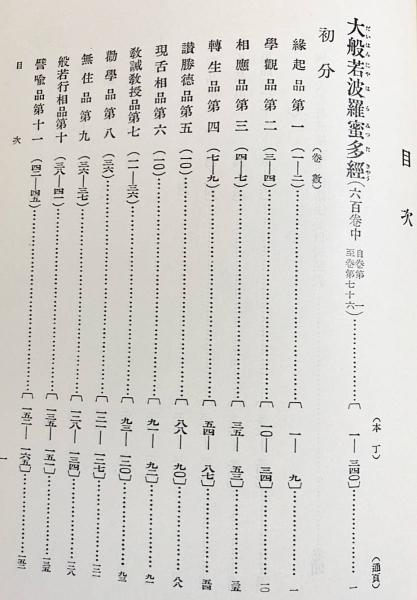 目次
(本丁) (通頁)
大般若波羅蜜多經(六百卷中 自卷第一至卷第七十六)……〔一—三四〇〕……一
だいはんにやはらみつたきやう
初分 (卷數)
緣起品第一 (一—二)……〔一—九〕……一
學觀品第二 (三—四)……〔一〇—三四〕……一〇
相應品第三 (四—七)……〔三五—五三〕……三五
轉生品第四 (七—九)……〔五四—八七〕……五四
讚勝德品第五 (一〇)……〔八八—九〇〕……八八
現舌相品第六 (一〇)……〔九一—九二〕……九一
敎誡敎授品第七 (一一—三六)……〔九三—一二〇〕……九三
勸學品第八 (三六)……〔一二一—一二七〕……一二一
無住品第九 (三六—三七)……〔一二八—一三四〕……一二八
般若行相品第十 (三八—四一)……〔一三五—一五一〕……一三五
譬喩品第十一 (四二—四五)……〔一五二—一六五〕……一五二
目次 一